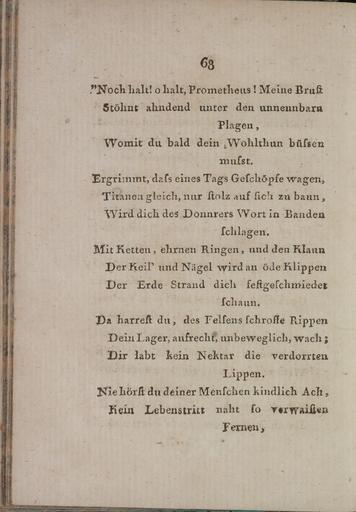 63
"Noch halt! o halt, Prometheus! Meine Bruſt
Stöhnt ahndend unter den unnennbarn
Plagen,
Womit du bald dein Wohlthun büſsen
muſst.
Ergrimmt, daſs eines Tags Geſchöpfe wagen,
Titanen gleich, nur ſtolz auf ſich zu baun,
Wird dich des Donnrers Wort in Banden
ſchlagen.
Mit Ketten, ehrnen Ringen, und den Klaun
Der Keil' und Nägel wird an öde Klippen
Der Erde Strand dich feſtgeſchmiedet
ſchaun.
Da harreſt du, des Felſens ſchroffe Rippen
Dein Lager, aufrecht, unbeweglich, wach;
Dir labt kein Nektar die verdorrten
Lippen.
Nie hörſt du deiner Menſchen kindlich Ach,
Kein Lebenstritt naht ſo verwaiſten
Fernen,